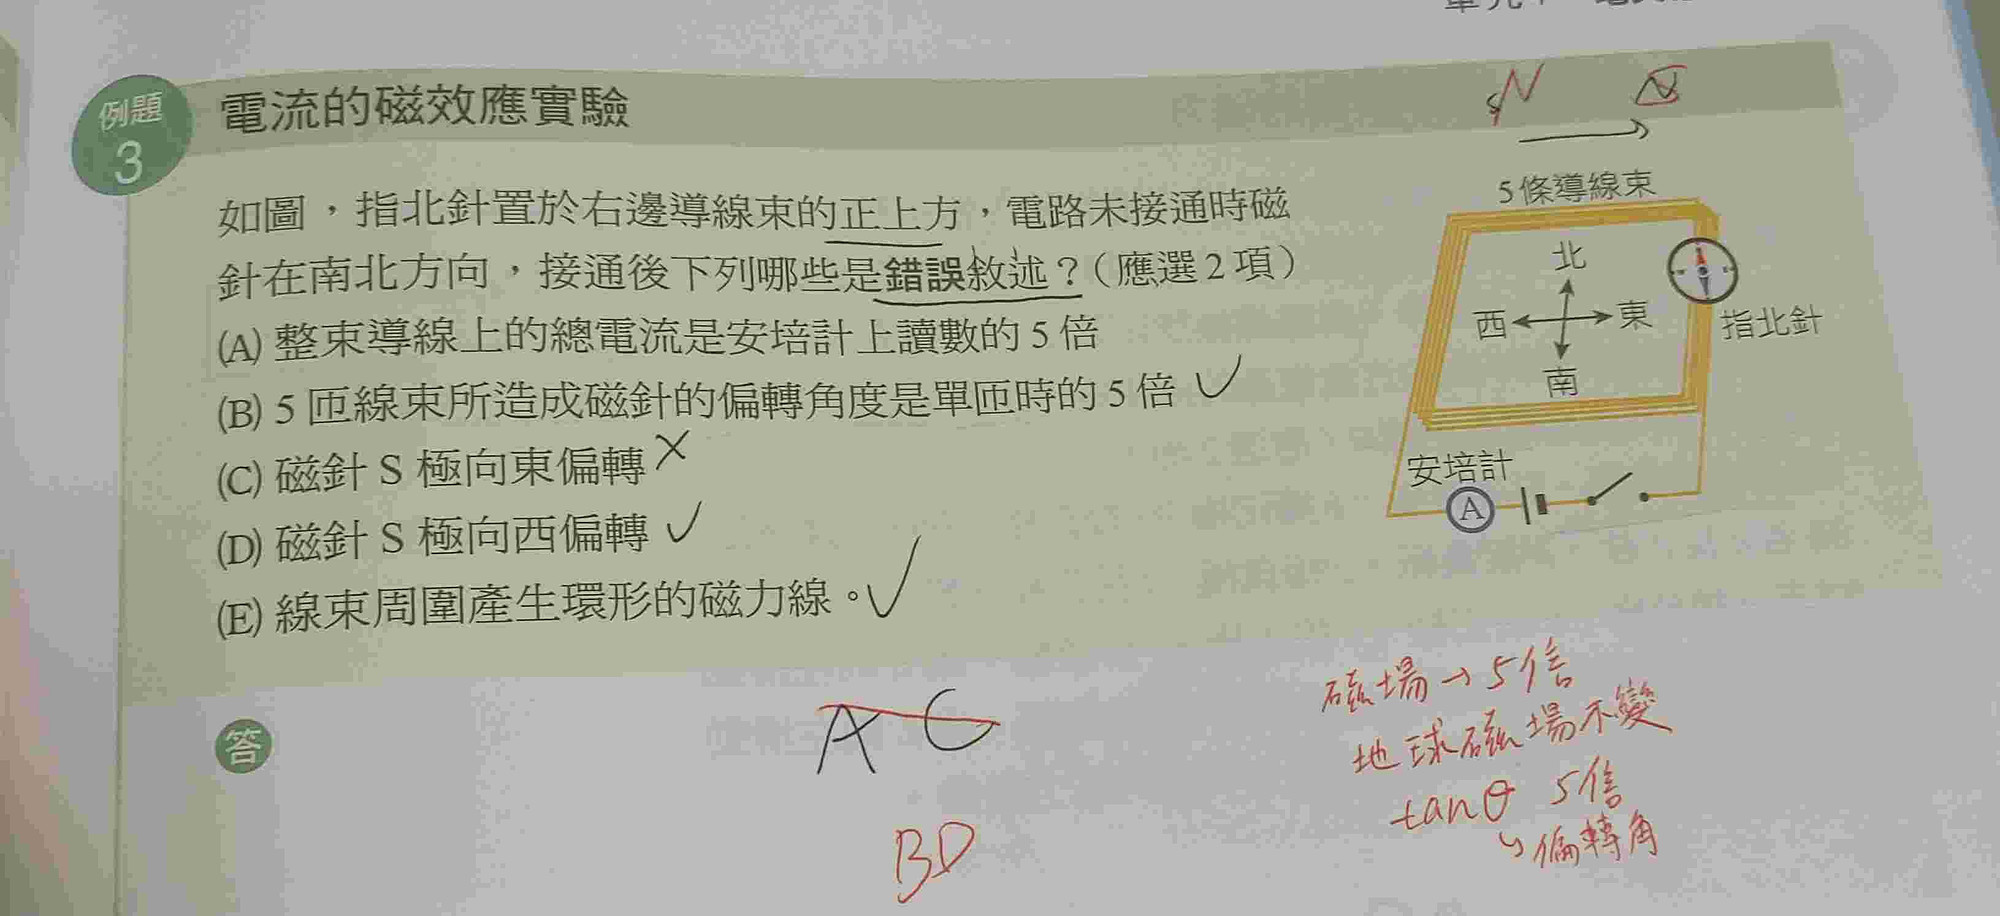 例題
3
電流的磁效應實驗
如圖，指北針置於右邊導線束的正上方，電路未接通時磁
針在南北方向，接通後下列哪些是錯誤敘述？（應選2項）
(A) 整束導線上的總電流是安培計上讀數的 5 倍
(B) 5 匝線束所造成磁針的偏轉角度是單匝時的 5 倍
(C) 磁針 S 極向東偏轉
(D) 磁針 S 極向西偏轉
(E) 線束周圍產生環形的磁力線。
N
5條導線束
北
西
東
南
指北針
安培計
A
答
A C
BD
磁場→5倍
地球磁場不變
tanθ 5倍
↳偏轉角